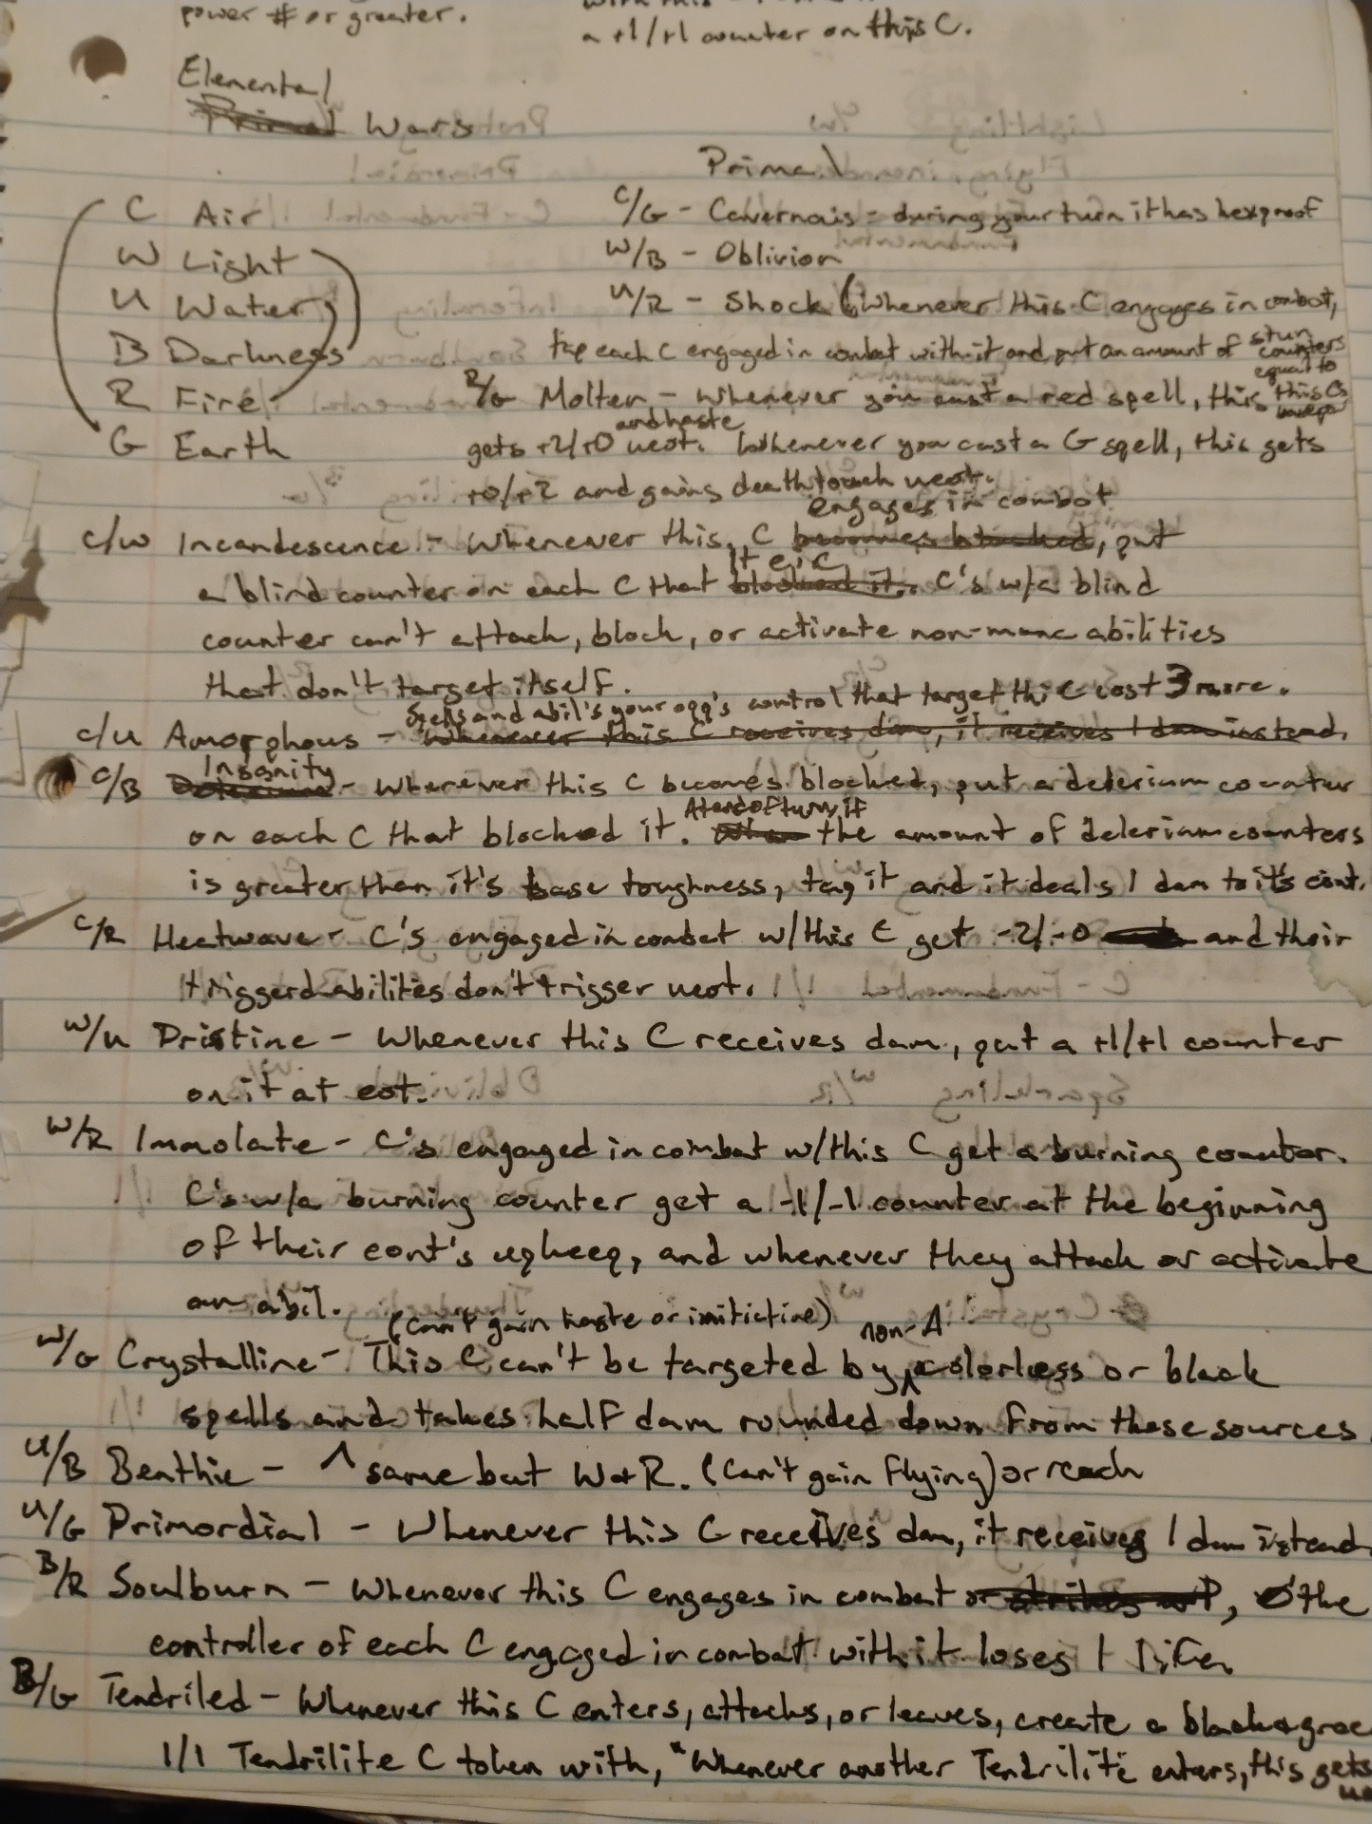 power # or greater.
a +1/+1 counter on this C.
Elemental
Primal Wars
Primal
C Air
C/G - Cavernous - during your turn it has hexproof
W Light
W/B - Oblivion
U Water
U/R - Shock (Whenever this C engages in combat,
B Darkness
tap each C engaged in combat with it and put an amount of stun counters
equal to
this C's
R Fire
R/G Molten - Whenever you cast a red spell, this
and haste
G Earth
gets +2/+0 ueot. Whenever you cast a G spell, this gets
+0/+2 and gains deathtouch ueot.
engages in combat
C/W Incandescence - Whenever this C becomes blocked, put
it e.i.c
a blind counter on each C that blocked it. C's w/a blind
counter can't attach, block, or activate non-mana abilities
that don't target itself.
Spells and abil's your opp's control that target this C cost 3 more.
C/U Amorphous - Whenever this C receives dam, it receives 1 dam instead.
Insanity
C/B - Whenever this C becomes blocked, put a delerium counter
At end of turn, if
on each C that blocked it. When the amount of delerium counters
is greater than it's base toughness, tap it and it deals 1 dam to it's cont.
C/R Heatwave - C's engaged in combat w/this C get -2/-0 and their
triggerd abilities don't trigger ueot.
W/U Pristine - Whenever this C receives dam, put a +1/+1 counter
on it at eot.
W/R Immolate - C's engaged in combat w/this C get a burning counter.
C's w/a burning counter get a -1/-1 counter at the beginning
of their cont's upkeep, and whenever they attach or activate
an abil.
(can't gain haste or imitictine) non-A
W/G Crystalline - This C can't be targeted by colorless or black
spells and takes half dam rounded down from those sources.
U/B Benthic - ^ same but W+R. (Can't gain flying) or reach
U/G Primordial - Whenever this C receives dam, it receives 1 dam istead
B/R Soulburn - Whenever this C engages in combat or strikes, the
controller of each C engaged in combat with it loses 1 life.
B/G Tendriled - Whenever this C enters, attacks, or leaves, create a black+gree
1/1 Tendrilite C token with, "Whenever another Tendrilite enters, this gets